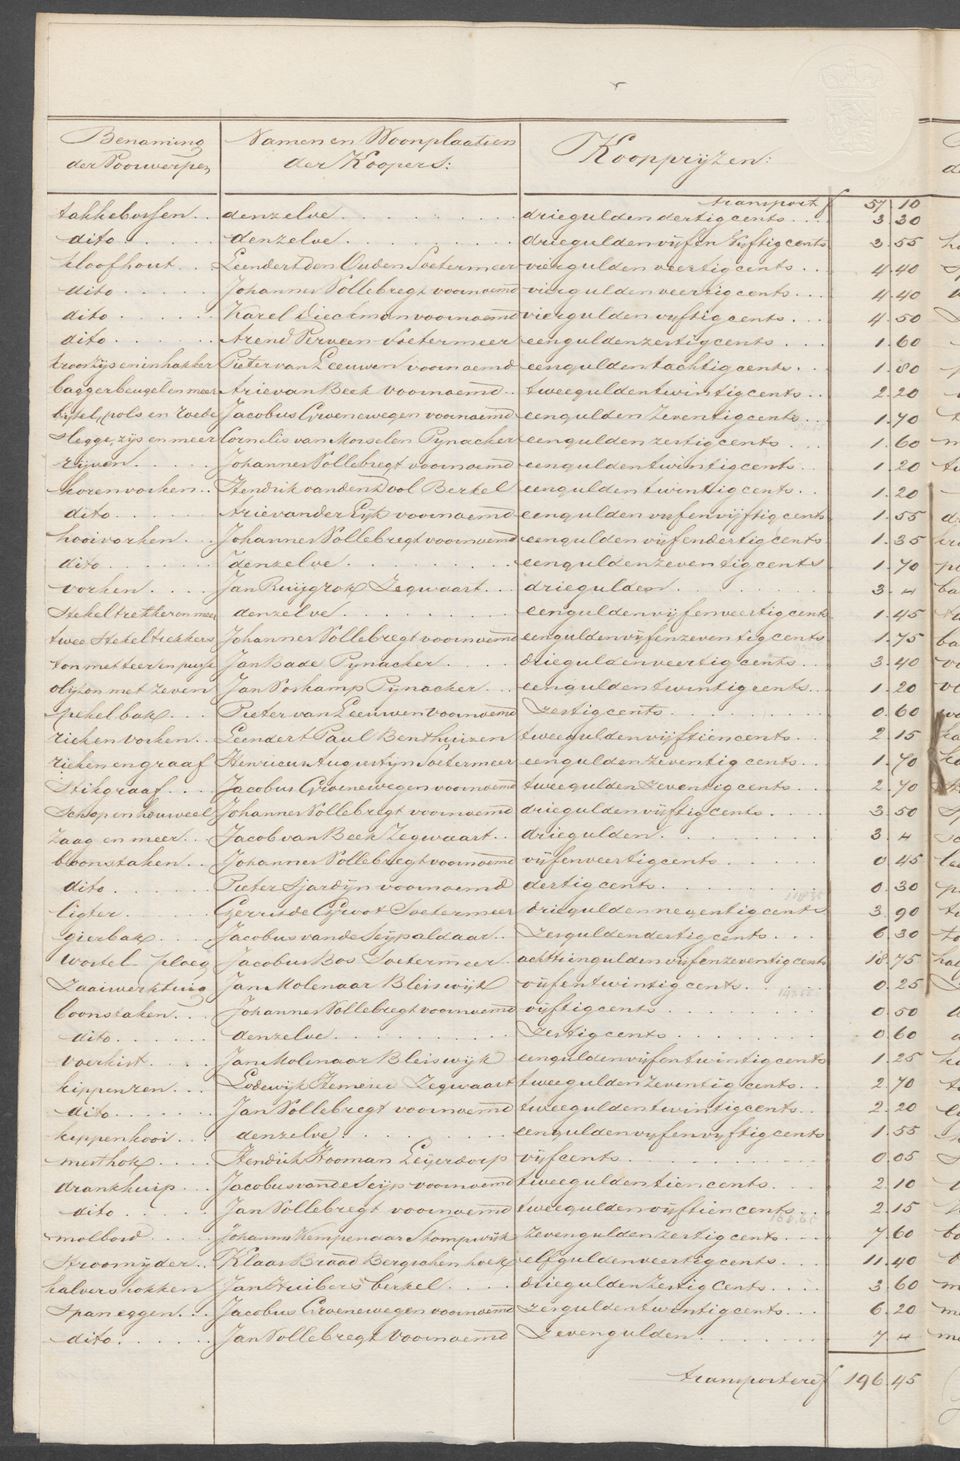 Benaming der Voorwerpen Namen en Woonplaatsen der Koopers: Koopprijzen:
transport f 57 10
takkebossen denzelve driegulden dertig cents 3.30
dito denzelve driegulden vijfen vijftig cents 3.55
kloofhout Leendert den Ouden Soetermeer viergulden veertig cents 4.40
dito Johannes Vollebregt voornoemd viergulden veertig cents 4.40
dito Karel Dieeman voornoemd viergulden vijftig cents 4.50
dito Arend Verveen Soetermeer eengulden zestig cents 1.60
Pieter van Leeuwen voornoemd eengulden tachtig cents 1.80
baggerbeugel en meer Arie van Beek voornoemd tweegulden twintig cents 2.20
bijtel, pols en Jacobus Groenewegen voornoemd eengulden zeventig cents 1.70
Hegge, zijs en meer Cornelis van Morselen Pynacker eengulden zestig cents 1.60
rijven Johannes Vollebregt voornoemd eengulden twintig cents 1.20
korenvorken Hendrik vanden Dool Berkel eengulden twintig cents 1.20
dito Arie vander Eijk voornoemd eengulden vijfenvijftig cents 1.55
hooivorken Johannes Vollebregt voornoemd eengulden vijfendertig cents 1.35
dito denzelve eengulden zeventig cents 1.70
vorken Jan Ruijgrok Zegwaart driegulden 3.„
Stekeltrekker en meer denzelve eengulden vijfenveertig cents 1.45
twee Stekeltrekkers Johannes Vollebregt voornoemd eengulden vijfenzeventig cents 1.75
ton met teer en Jan Bade Pynacker driegulden veertig cents 3.40
met zeven Jan Voskamp Pijnacker eengulden twintig cents 1.20
pekelbak Pieter van Leeuwen voornoemd zestig cents 0.60
rieken vorken Leendert Paul Benthuizen tweegulden vijftien cents 2.15
rieken en graaf Henricus Augustijn Soetermeer eengulden zeventig cents 1.70
Stikgraaf Jacobus Groenewegen voornoemd tweegulden zeventig cents 2.70
Schop en houweel Johannes Vollebregt voornoemd driegulden vijftig cents 3.50
zaag en meer Jacob van Beek Zegwaart driegulden 3.„
boonstaken Johannes Vollebregt voornoemd vijfenveertig cents 0.45
dito Pieter Sjardijn voornoemd dertig cents 0.30
ligter Gerrit de Groot Soetermeer driegulden negentig cents 3.90
gierbak Jacobus vande Seijp aldaar zesgulden dertig cents 6.30
wortel ploeg Jacobus Bos Soetermeer achttiengulden vijfenzeventig cents 18.75
Zaaiwerktuig Jan Molenaar Bleiswijk vijfentwintig cents 0.25
boonstaken Johannes Vollebregt voornoemd vijftig cents 0.50
dito denzelve zestig cents 0.60
voerkist Jan Molenaar Bleiswijk eengulden vijfentwintig cents 1.25
kippenren Lodewijk Zegwaart tweegulden zeventig cents 2.70
dito Jan Vollebregt voornoemd tweegulden twintig cents 2.20
kippenkooi denzelve eengulden vijfenvijftig cents 1.55
mesthok Hendrik Hooman Leijerdorp vijf cents 0.05
drankkuip Jacobus vande Seijp voornoemd tweegulden tien cents 2.10
dito Jan Vollebregt voornoemd tweegulden vijftien cents 2.15
molbord Johannes Kempenaar Stompwijk zevengulden zestig cents 7.60
Klaas Braad Bergschenhoek elfgulden veertig cents 11.40
halvershokken Jan Huibers berkel driegulden zestig cents 3.60
Span eggen Jacobus Groenewegen voornoemd zesgulden twintig cents 6.20
dito Jan Vollebregt voornoemd zevengulden 7.„
transporteren f 196.45